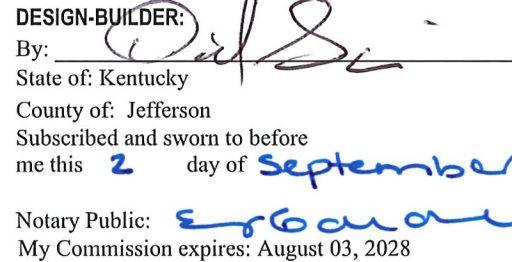 DESIGN-BUILDER:
By:
State of: Kentucky
County of: Jefferson
Subscribed and sworn to before
me this 2 day of September
Notary Public:
My Commission expires: August 03, 2028